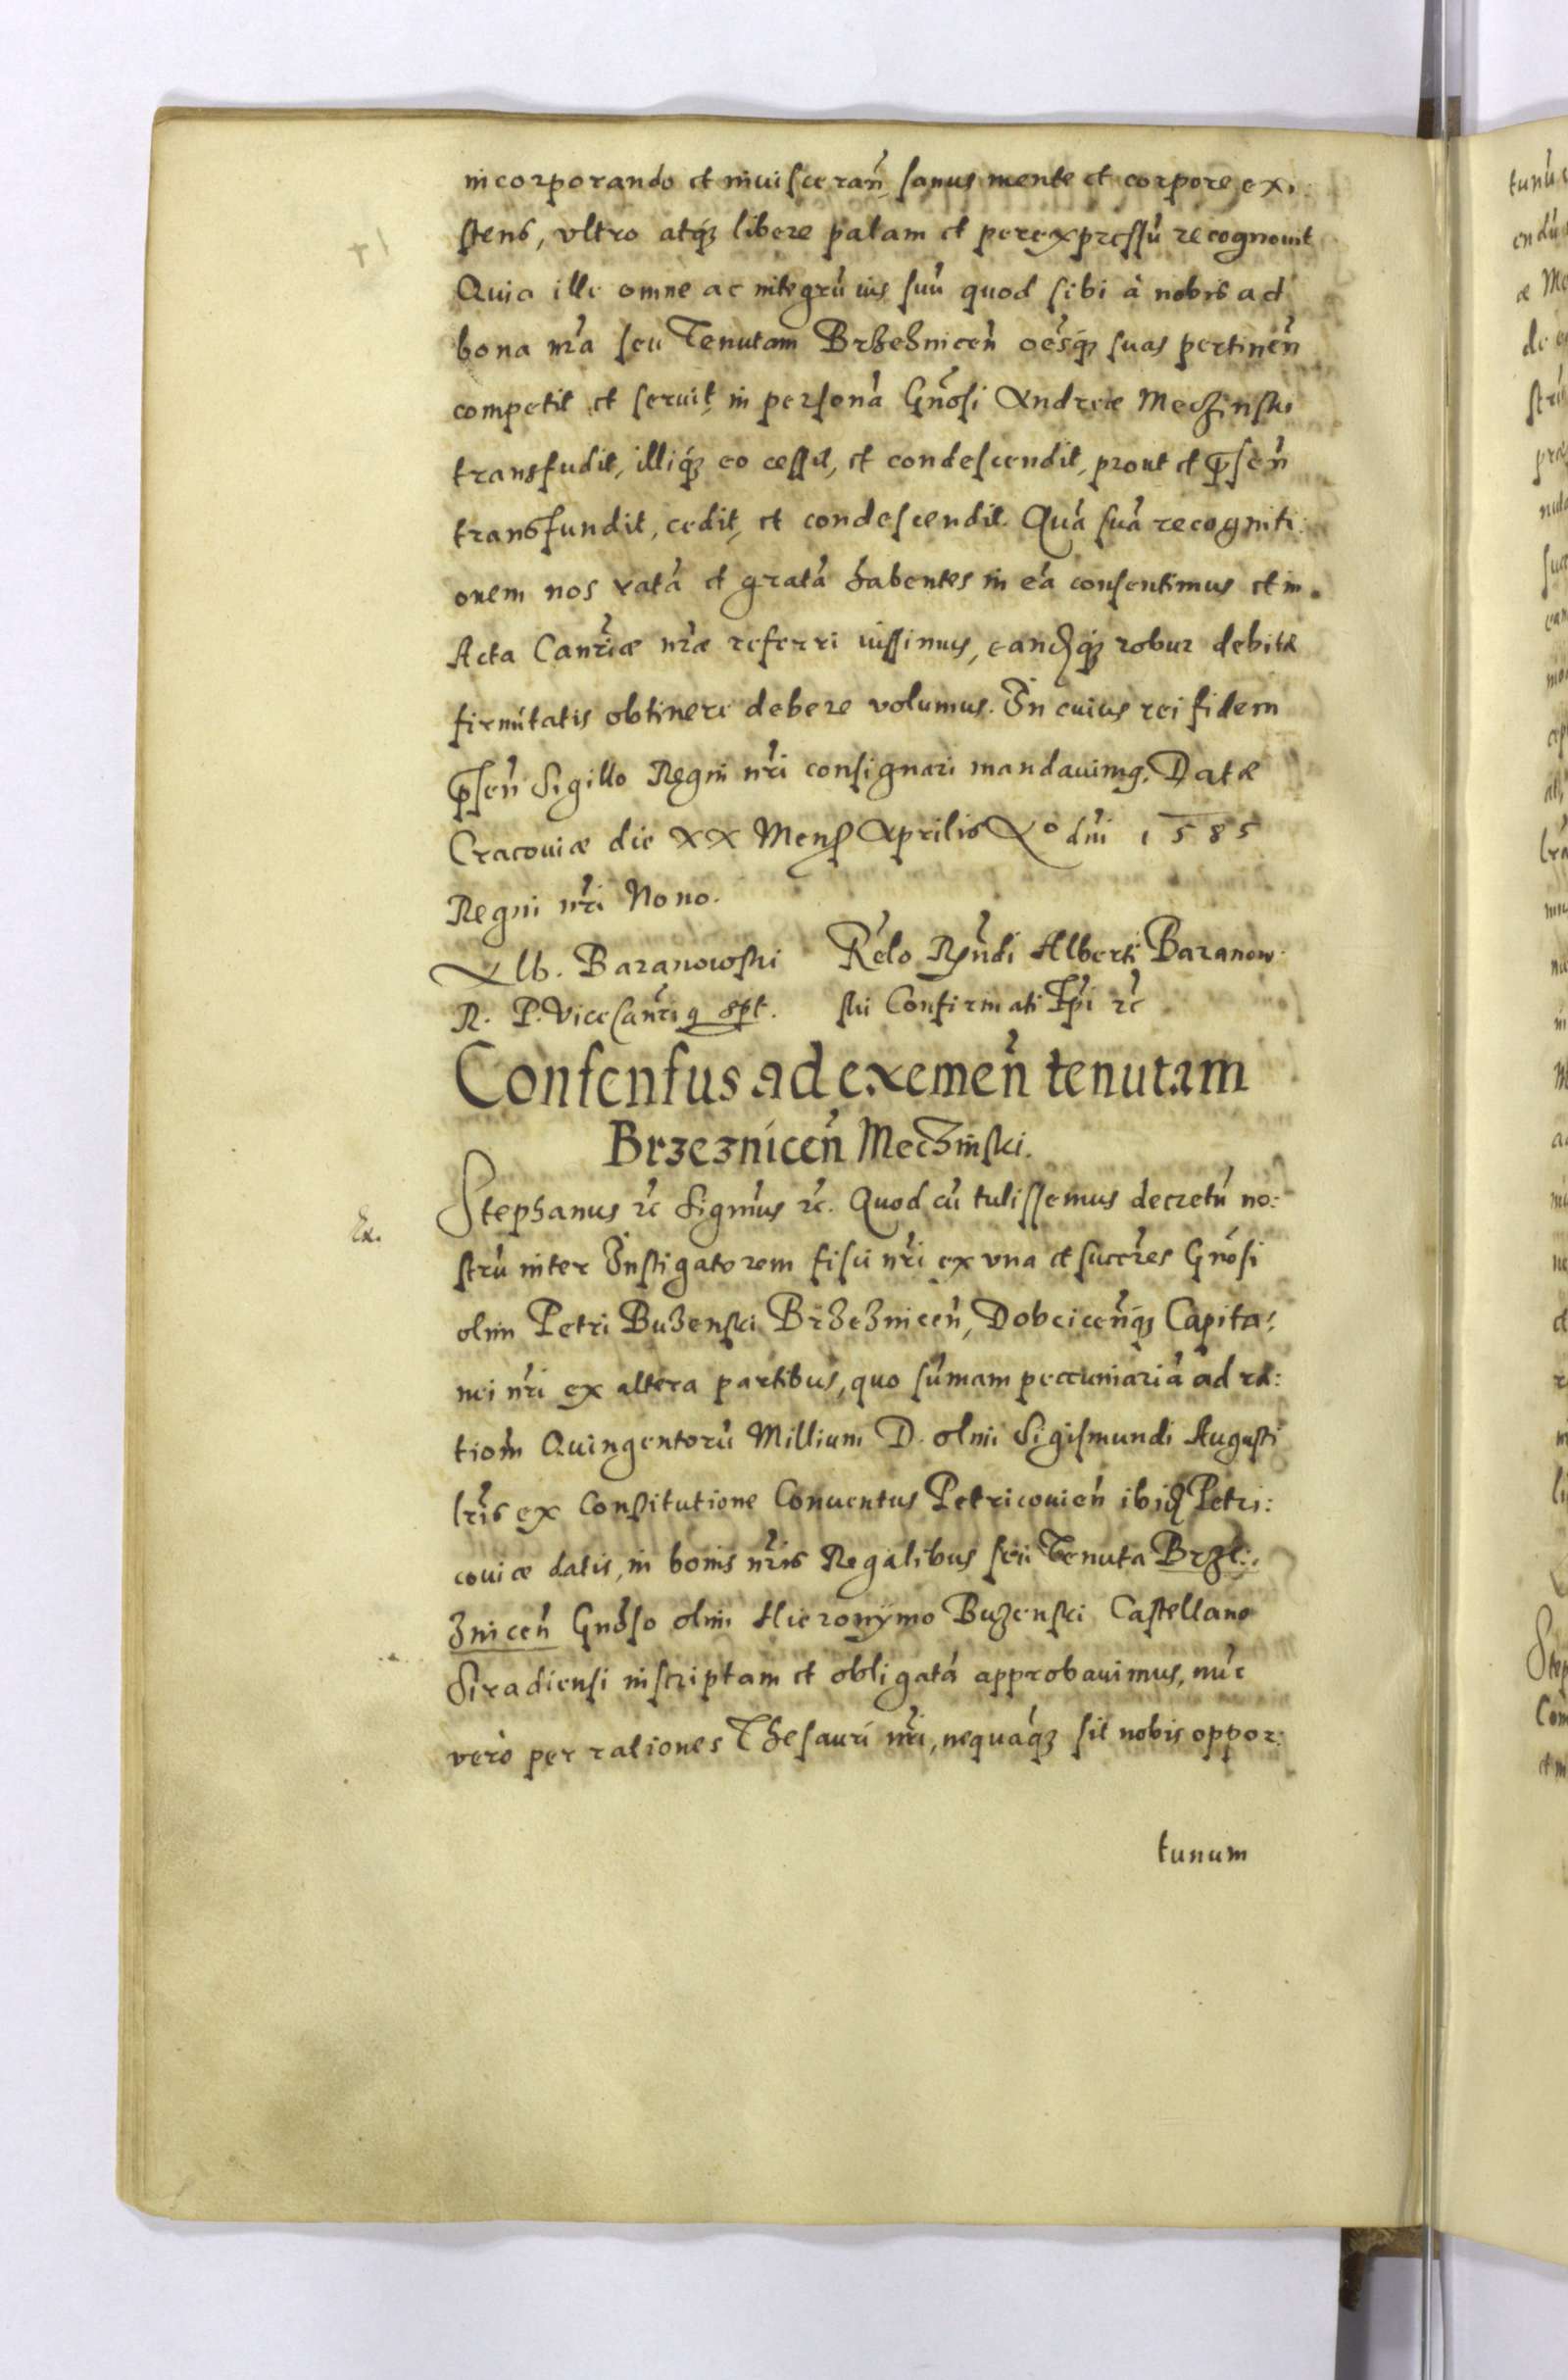 incorporando et inuisceran̄ sanus mente et corpore exi:
stens, vltro atq́ꝫ libere palam et per expressū recognouit
Quia ille omne ac integrū ius suū quod sibi à nobis ad
bona nr̄a seu Tenutam Brzeznicen̄ oēsq́ꝫ suas pertinen̄
competit et seruit, in personā Gn̄osi Andreæ Meczinski
transfudit, illiq́ꝫ eo cessit, et condescendit, prout et p̄sen̄
transfundit, cedit, et condescendit. Quā suā recogniti:
onem nos ratā et gratā habentes in eā consentimus et in
Acta Canr̄iæ nr̄æ referri iussimus, eandq́ꝫ robur debitæ
firmitatis obtinere debere volumus. In cuius rei fidem
p̄sen̄ Sigillo Regni nr̄i consignari mandauimꝰ. Datæ
Cracouiæ die XX Mens Aprilis Aº dn̄i 1585
Regni nr̄i Nono.
Alb. Baranowski Rēlo Rn̄di Alberti Baranow:
R. P. Vicecanr̄iꝰ sspt. ski Confirmati Ep̄i rc̄
Consensus ad exemen̄ tenutam
Brzeznicen̄ Meczinski.
Ex. Stephanus rc̄ Signm̄us rc̄. Quod cū tulissemus decretū no:
strū inter Instigatorem fisci nr̄i ex vna et succr̄es Gn̄osi
olim Petri Buzenski Brzeznicen̄, Dobcicen̄q́ꝫ Capita:
nei nr̄i ex altera partibus, quo sūmam peccuniariā ad ra:
tiom̄ Quingentorū Millium D. olim Sigismundi Augusti
lr̄is ex Constitutione Conuentus Petricouien̄ ibid Petri:
couiæ datis, in bonis nr̄is Regalibus seu Tenuta Brze:
znicen̄ Gn̄oso olim Hieronÿmo Buzenski Castellano
Siradiensi inscriptam et obligatā approbauimus, nūc
verò per rationes Thesauri nr̄i, nequāq́ꝫ sit nobis oppor:
tunum